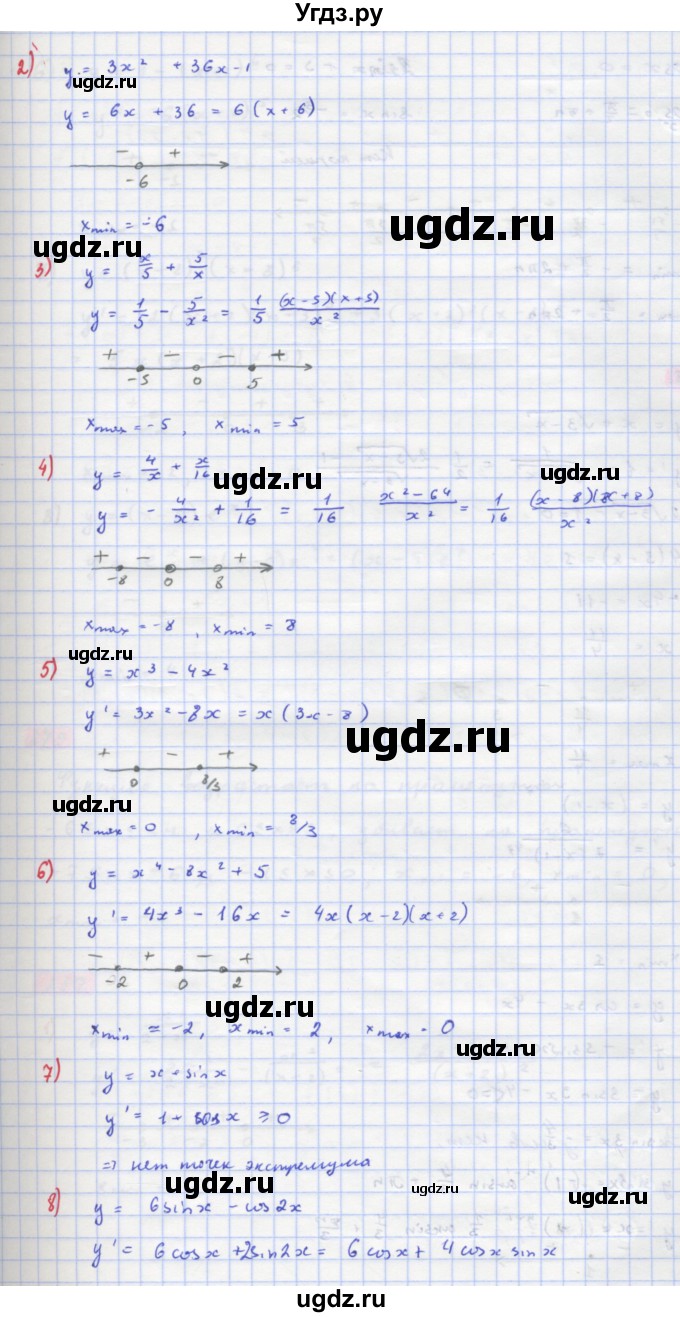 Угдз.ру
2) y = 3x² + 36x - 1
y = 6x + 36 = 6(x + 6)
- +
-6
x min = -6
ugdz.ru
ugdz.ru
3) y = x/5 + 5/x
y = 1/5 - 5/x² = 1/5 (x-5)(x+5)/x²
+ - - +
-5 0 5
x max = -5, x min = 5
4) y = 4/x + x/16
ugdz.ru
ugdz.ru
y = - 4/x² + 1/16 = 1/16 x²-64/x² = 1/16 (x-8)(x+8)/x²
+ - - +
-8 0 8
x max = -8, x min = 8
ugdz.ru
5) y = x³ - 4x²
y' = 3x² - 8x = x(3x - 8)
ugdz.ru
+ - +
0 8/3
ugdz.ru
x max = 0, x min = 8/3
6) y = x⁴ - 8x² + 5
y' = 4x³ - 16x = 4x(x-2)(x+2)
- + - +
-2 0 2
ugdz.ru
x min = -2, x min = 2, x max = 0
ugdz.ru
7) y = x + sin x
y' = 1 + cos x ≥ 0
=> нет точек экстремума
ugdz.ru
ugdz.ru
ugdz.ru
8) y = 6 sin x - cos 2x
y' = 6 cos x + 2 sin 2x = 6 cos x + 4 cos x sin x
ugdz.ru